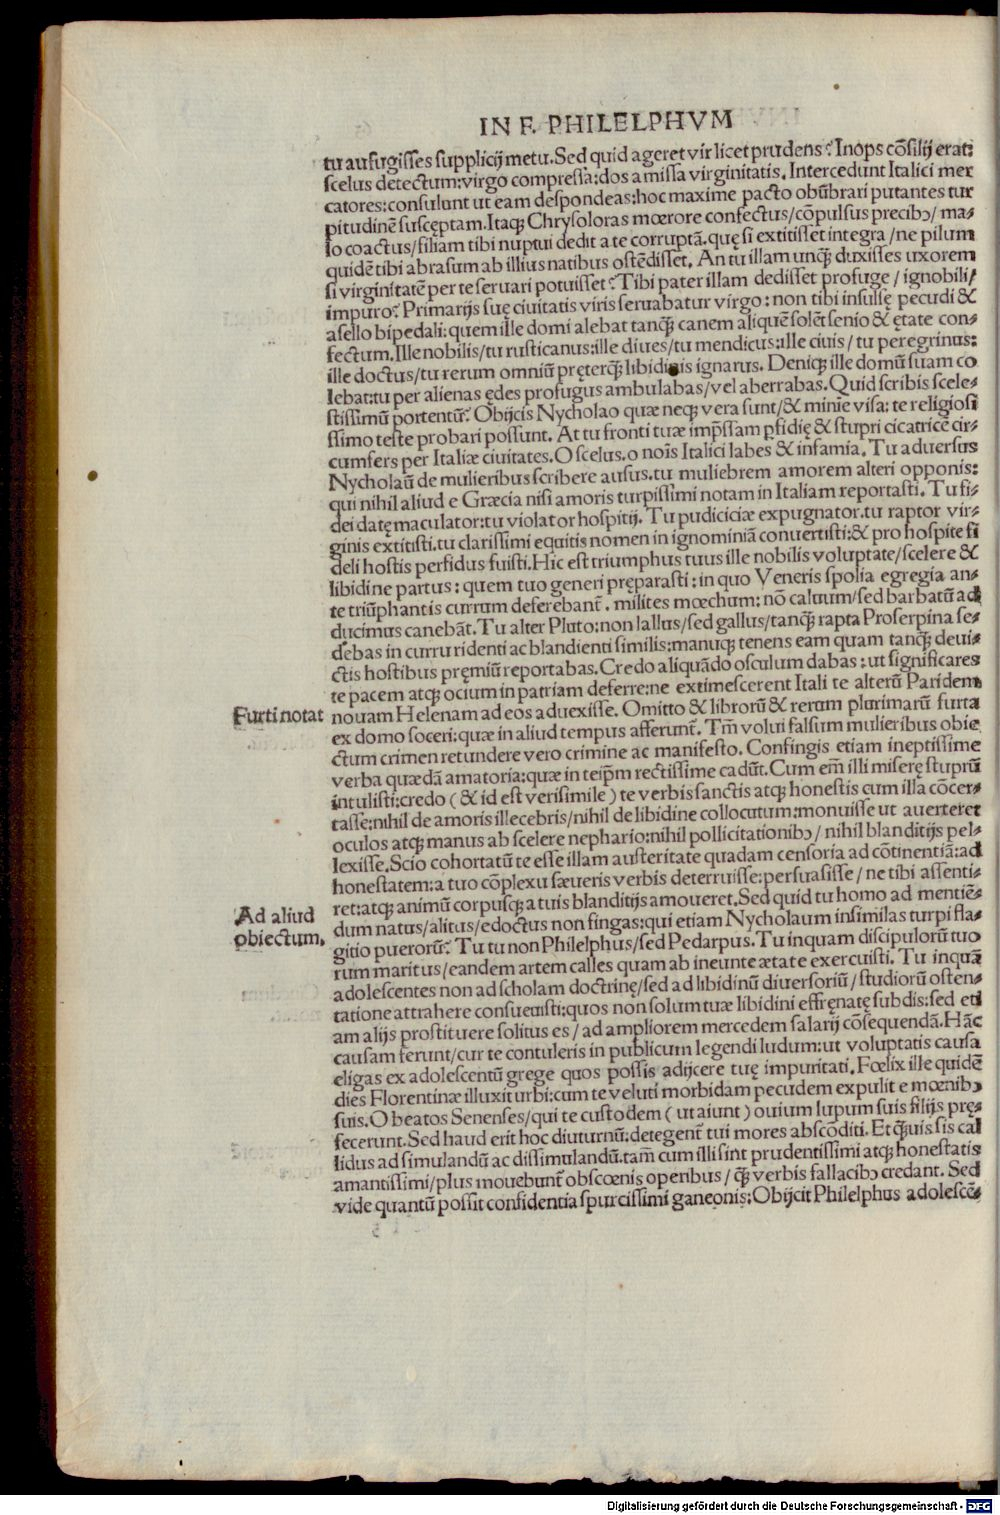 IN F. PHILELPHVM
tu aufugisses supplicij metu. Sed quid ageret vir licet prudens? Inops cõsilij erat:
scelus detectum: virgo compressa: dos amissa virginitatis. Intercedunt Italici mer
catores: consulunt ut eam despondeas: hoc maxime pacto obũbrari putantes tur
pitudinẽ susceptam. Itaq; Chrysoloras mœrore confectus/ cõpulsus precibꝰ/ ma-
lo coactus/ filiam tibi nuptui dedit a te corruptã. quę si extitisset integra/ ne pilum
quidẽ tibi abrasum ab illius natibus ostẽdisset. An tu illam unq̃ duxisses uxorem
si virginitatẽ per te seruari potuisset? Tibi pater illam dedisset profuge/ ignobili/
impuro? Primarijs suę ciuitatis viris seruabatur virgo: non tibi insulsę pecudi &
asello bipedali: quem ille domi alebat tanq̃ canem aliquẽ solẽt senio & ętate con-
fectum. Ille nobilis/ tu rusticanus: ille diues/ tu mendicus: ille ciuis/ tu peregrinus:
ille doctus/ tu rerum omniũ pręterq̃ libidinis ignarus. Deniq; ille domũ suam co
lebat: tu per alienas ędes profugus ambulabas/ vel aberrabas. Quid scribis scele-
stissimũ portentũ? Obijcis Nycholao quæ neq; vera sunt/ & minie visa: te religiosi
ssimo teste probari possunt. At tu fronti tuæ imp̃ssam pfidię & stupri cicatricẽ cir-
cumfers per Italiæ ciuitates. O scelus. o nois̃ Italici labes & infamia. Tu aduersus
Nycholaũ de mulieribus scribere ausus. tu muliebrem amorem alteri opponis:
qui nihil aliud e Græcia nisi amoris turpissimi notam in Italiam reportasti. Tu fi-
dei datę maculator: tu violator hospitij. Tu pudiciciæ expugnator. tu raptor vir-
ginis extitisti. tu clarissimi equitis nomen in ignominiã conuertisti: & pro hospite fi
deli hostis perfidus fuisti. Hic est triumphus tuus ille nobilis voluptate/ scelere &
libidine partus: quem tuo generi pręparasti: in quo Veneris spolia egregia an-
te triũphantis currum deferebant̃. milites mœchum: nõ caluum/ sed barbatũ ad
ducimus canebãt. Tu alter Pluto: non lallus/ sed gallus/ tanq̃ rapta Proserpina se-
debas in curru ridenti ac blandienti similis: manuq; tenens eam quam tanq̃ deui-
ctis hostibus pręmiũ reportabas. Credo aliquãdo osculum dabas: ut significares
te pacem atq; ocium in patriam deferre: ne extimescerent Itali te alterũ Paridem
Furti notat
nouam Helenam ad eos aduexisse. Omitto & librorũ & rerum plurimarũ furta
ex domo soceri: quæ in aliud tempus afferunt̃. Tm̃ volui falsum mulieribus obie
ctum crimen retundere vero crimine ac manifesto. Confingis etiam ineptissime
verba quædã amatoria: quæ in teip̃m rectissime cadũt. Cum em̃ illi miserę stuprũ
intulisti: credo (& id est verisimile) te verbis sanctis atq; honestis cum illa cõcer-
tasse: nihil de amoris illecebris/ nihil de libidine collocutum: monuisse ut auerteret
oculos atq; manus ab scelere nephario: nihil pollicitationibꝰ/ nihil blanditijs pel-
lexisse. Scio cohortatũ te esse illam austeritate quadam censoria ad cõtinentiã: ad
honestatem: a tuo cõplexu sæueris verbis deterruisse: persuasisse/ ne tibi assenti-
ret: atq; animũ corpusq; a tuis blanditijs amoueret. Sed quid tu homo ad mentiẽ-
Ad aliud
obiectum.
dum natus/ alitus/ edoctus non fingas: qui etiam Nycholaum insimilas turpi fla-
gitio puerorũ? Tu tu non Philelphus/ sed Pedarpus. Tu inquam discipulorũ tuo
rum maritus/ eandem artem calles quam ab ineunte ætate exercuisti. Tu inquã
adolescentes non ad scholam doctrinę/ sed ad libidinũ diuersoriũ/ studiorũ osten-
tatione attrahere consueuisti: quos non solum tuæ libidini effręnatę subdis: sed eti
am alijs prostituere solitus es/ ad ampliorem mercedem salarij cõsequendã. Hãc
causam ferunt/ cur te contuleris in publicum legendi ludum: ut voluptatis causa
eligas ex adolescentũ grege quos possis adijcere tuę impuritati. Fœlix ille quidẽ
dies Florentinæ illuxit urbi: cum te veluti morbidam pecudem expulit e mœnibꝰ
suis. O beatos Senenses/ qui te custodem (ut aiunt) ouium lupum suis filijs pręː
fecerunt. Sed haud erit hoc diuturnũ: detegent̃ tui mores abscõditi. Et q̃uis sis cal
lidus ad simulandũ ac dissimulandũ. tam̃ cum illi sint prudentissimi atq; honestatis
amantissimi/ plus mouebunt̃ obscœnis operibus/ q̃ verbis fallacibꝰ credant. Sed
vide quantũ possit confidentia spurcissimi ganeonis: Obijcit Philelphus adolescẽ-
Digitalisierung gefördert durch die Deutsche Forschungsgemeinschaft - DFG